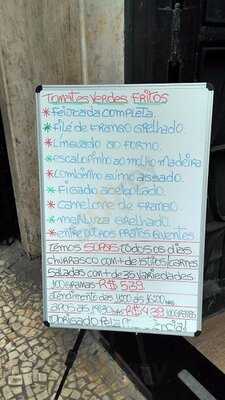 TOMATES VERDES FRITOS
* FEIJOADA COMPLETA.
* FILÉ DE FRANGO GRELHADO.
* LINGUADO AO FORNO.
* ESCALOPINHO AO MOLHO MADEIRA
* LOMBINHO SUÍNO ASSADO.
* FIGADO ACEBOLADO.
* CANELONE DE FRANGO.
* MERLUZA GRELHADO.
* ENTRE OUTROS PRATOS QUENTES
TEMOS SOPAS TODOS OS DIAS
CHURRASCO COM + DE 15 TIPOS CARNES
SALADAS COM + DE 35 VARIEDADES
100 GRAMAS R$ 5,39
ATENDIMENTO DAS
APÓS AS R$ 4,39
OBRIGADO